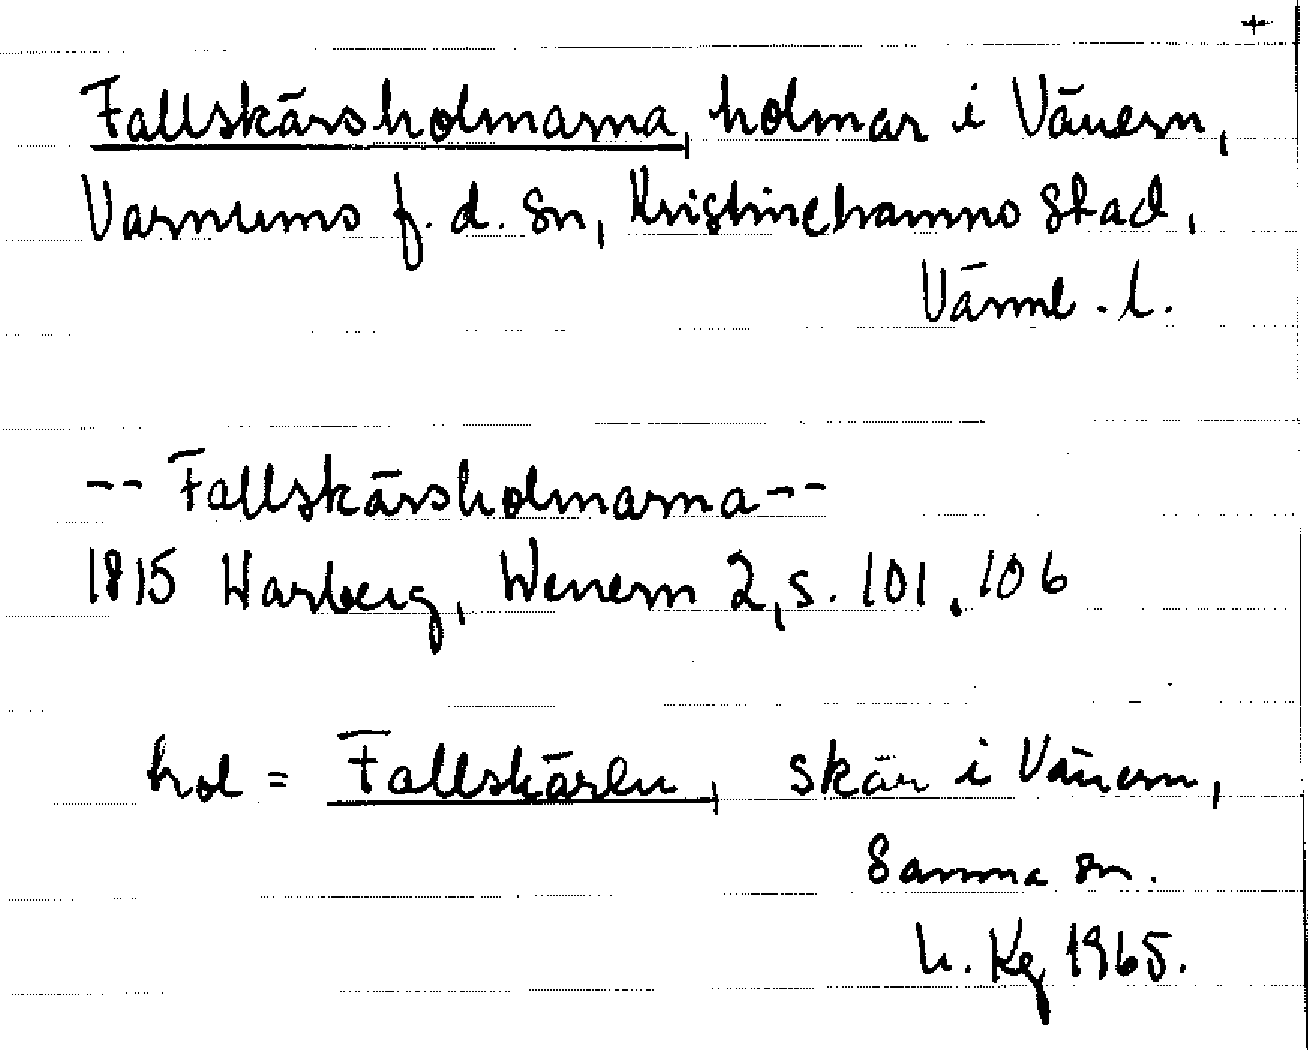 +
Fallskärsholmarna, holmar i Vänern,
Varnums f. d. sn, Kristinehamns stad,
Värml. l.
-- Fallskärsholmarna --
1815 Warberg, Wenern 2, s. 101, 106
hol = Fallskären, skär i Vänern,
Samma sn.
h. Kg 1965.